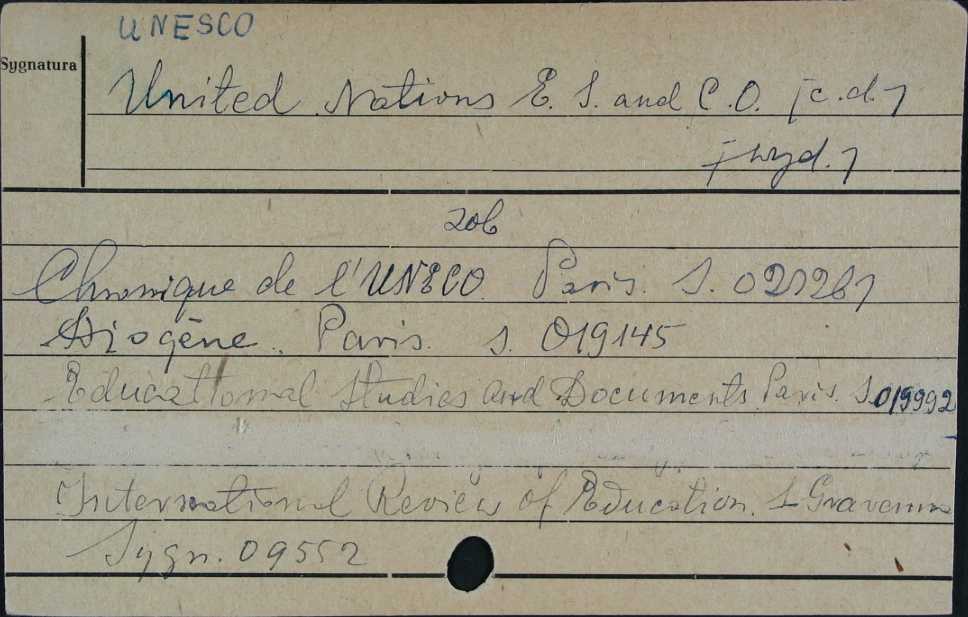 UNESCO
Sygnatura
United Nations E. S. and C. O. [c.d.]
[wyd.]
zob
Chronique de l'UNESCO. Paris. S. 021261
Diogène. Paris. S. 019145
Educational Studies and Documents Paris. S. 019992
International Review of Education.
Sygn. 09552